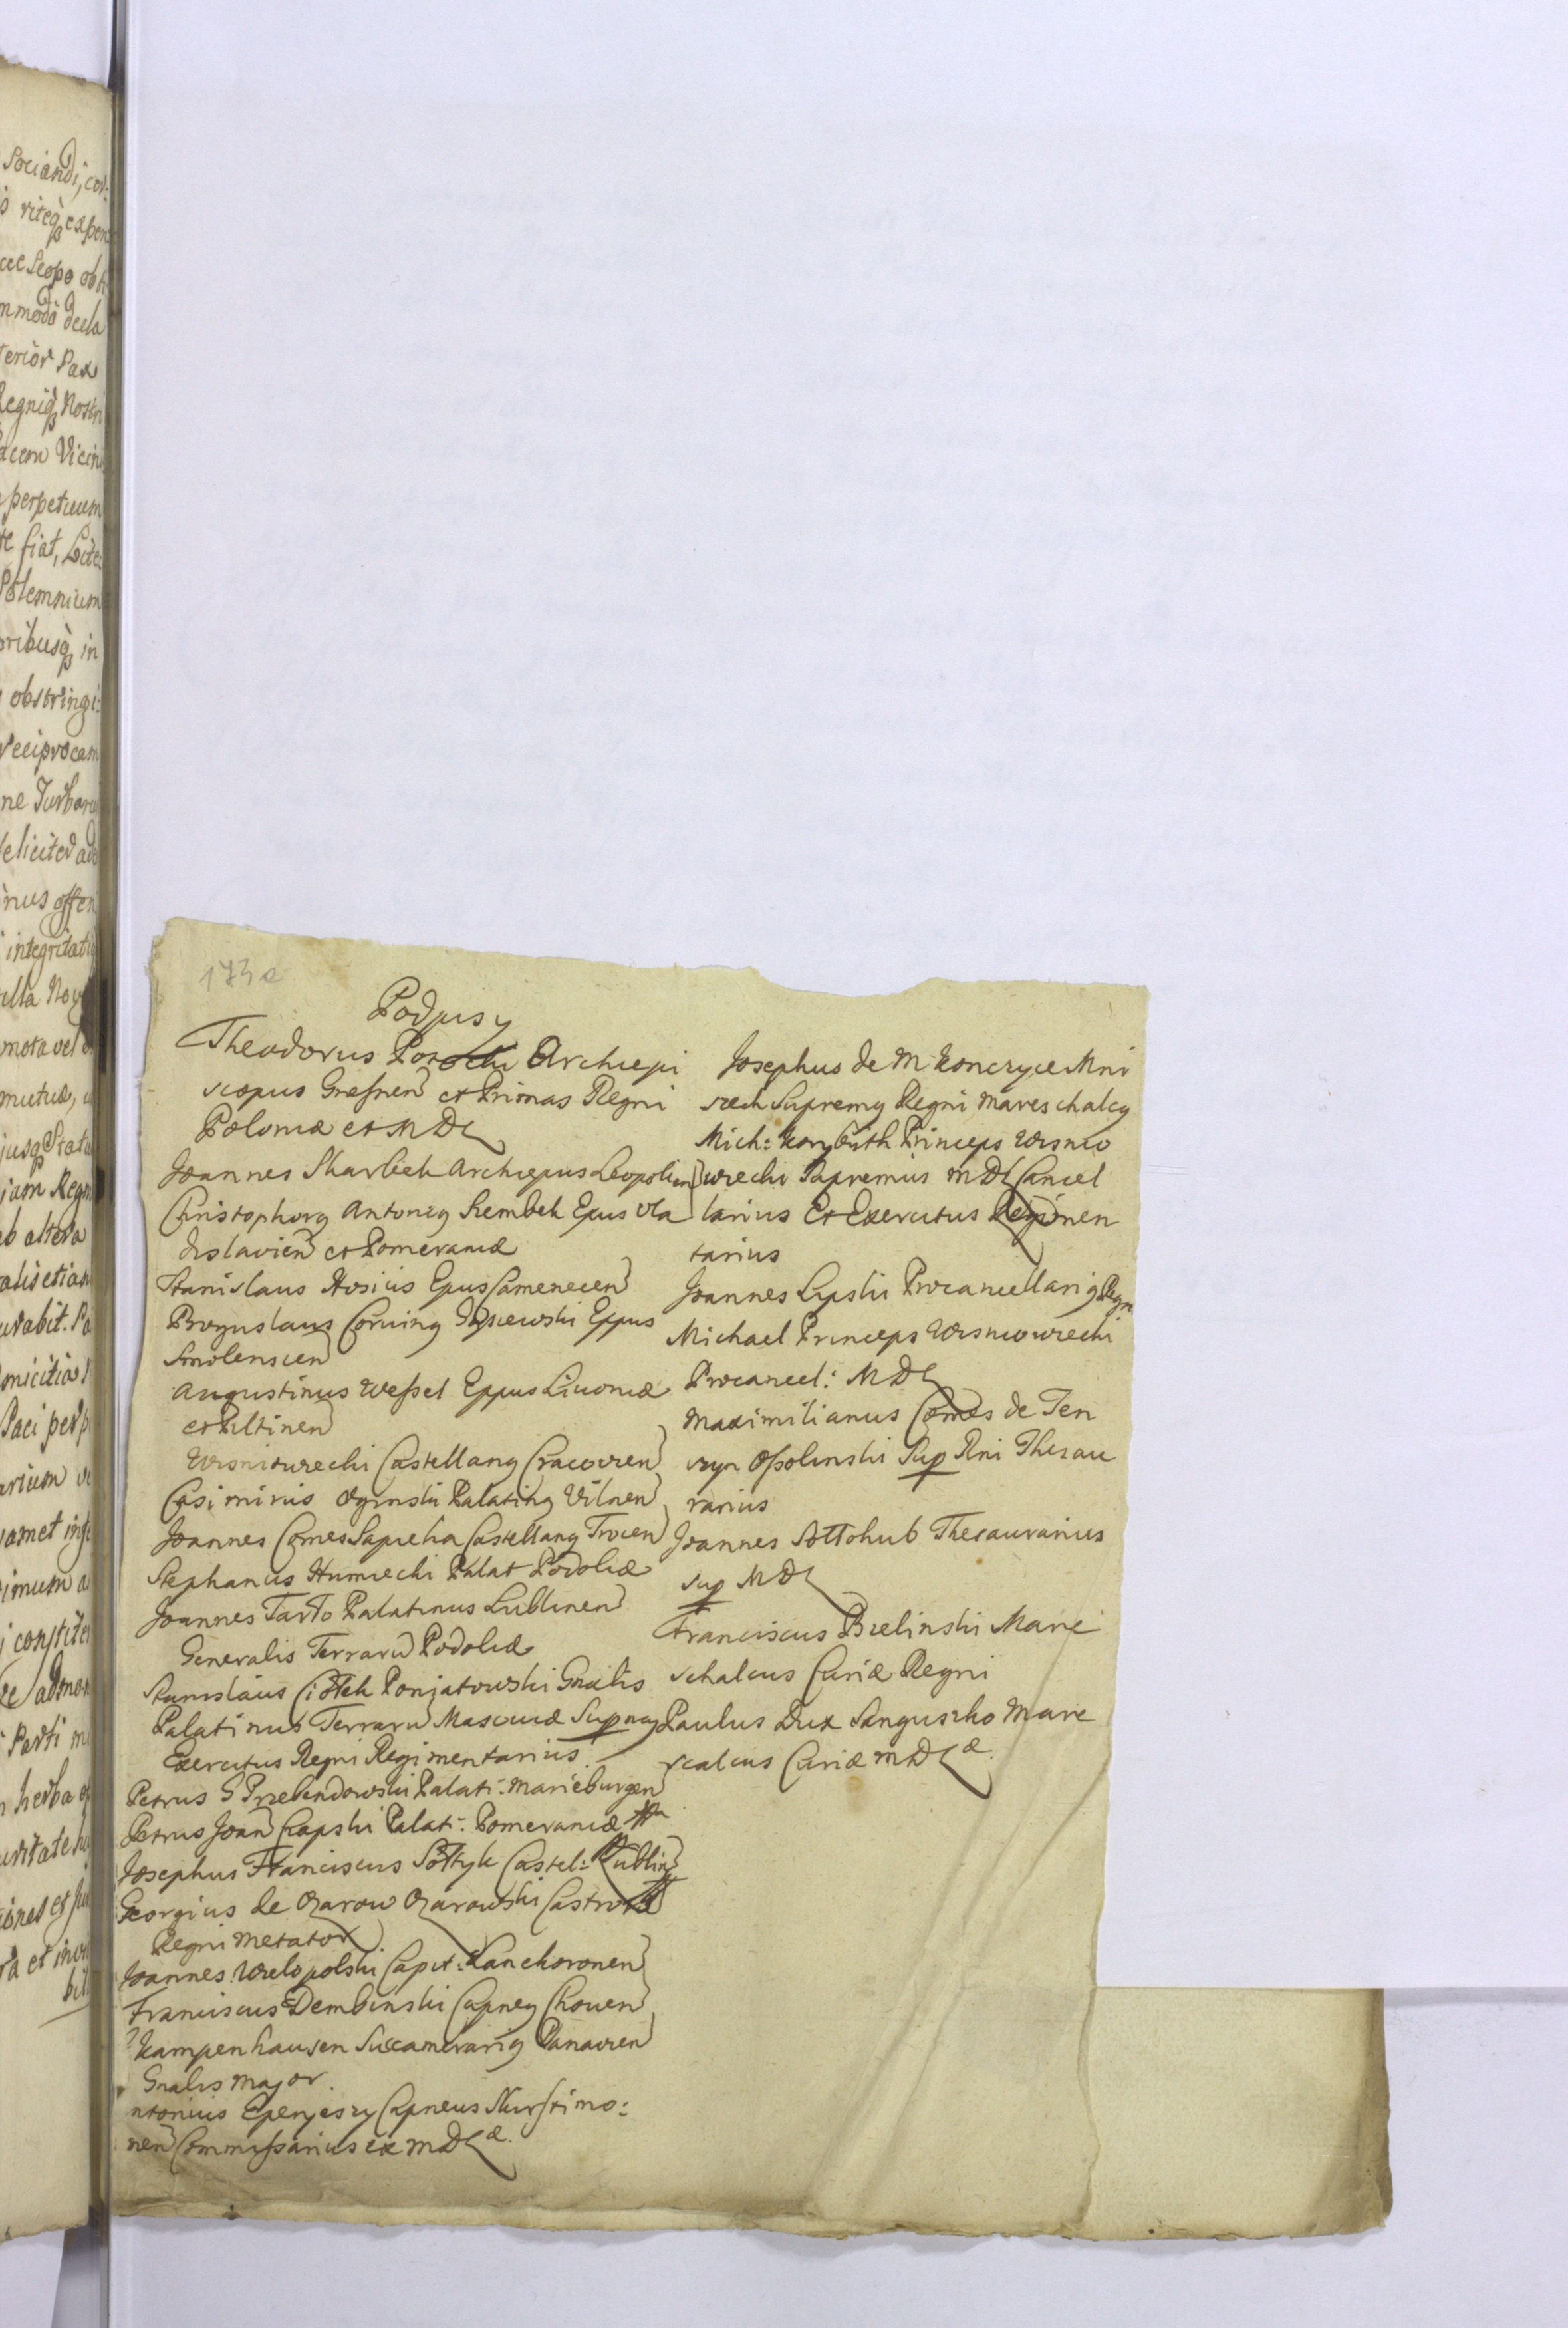 Sociandi, cor-
riteq expen
Scopo obti
modo decla
terior Pax
Regniq Nostri
acem Vicin
perpetuum
fiat, Lite
Solemnium
oribusq in
obstringi:
reciprocam
ne Turbaru
felicited ad
nus offen
integritati
illa Nov
mota vel
mutuæ,
jusq Statu
jam Regn
ab altera
alis etiam
urabit. Pa
micitia
Paci perp
arium
amet
imum
constite
admon
Parti
herba
et
173a
Podpisy
Theodorus Potocki Archiepi
scopus Gnesnen et Primas Regni
Poloniæ et MDL
Joannes Skarbek Archiepus Leopolien
Christophorg Antonig Szembek Epus Vla
dislavien et Pomeraniæ
Stanislaus Hosius Epus Camenecen
Boguslaus Corving Gosiewski Eppus
Smolenscen
Augustinus Wessel Eppus Livoniæ
et Piltinen
Wisniowiecki Castellang Cracovien
Casimirus Oginski Palating Vilnen
Joannes Comes Sapieha Castellang Trocen
Stephanus Humiecki Palat Podoliæ
Joannes Tarło Palatinus Lublinen
Generalis Terraru Podoliæ
Stanislaus Ciołek Poniatowski Gnalis
Palatinus Terraru Masoviæ Supmg
Exercitus Regni Regimentarius
Petrus G Przebendowski Palati: Marieburgen
Petrus Joan Czapski Palati: Pomeraniæ
Josephus Franciscus Sołtyk Castel: Lublin
Georgius de Ozarow Ozarowski Castror
Regni Metator
Joannes Wielopolski Capit: Lanckoronen
Franciscus Dembinski Capneg Chouen
Kampenhausen Succamerarig Panavien
Gnalis Major
ntonius Eperjeszy Capneus Nurstimo:
nen Commissarius ex MDLæ
Josephus de M Konczyce Mni
szech Supremg Regni Mareschalcg
Mich: Korybuth Princeps Wisnio
wiecki Supremus MDL Cancel
larius Et Exercitus Regimen
tarius
Joannes Lipski Procancellarig Regn
Michael Princeps Wisniowiecki
Procancel: MDL
Maximilianus Comes de Ten
czyn Ossolinski Sup Rni Thesau
rarius
Joannes Sołłohub Thesaurarius
sup MDL
Franciscus Bielinski Mare
schalcus Curiæ Regni
Paulus Dux Sanguszko Mare
scalcus Curiæ MDLæ